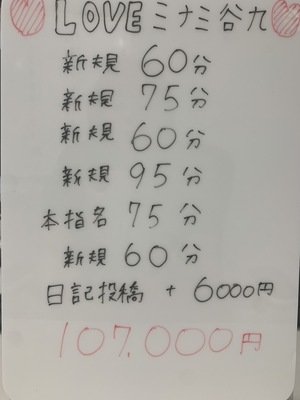 LOVEミナミ谷九
新規 60分
新規 75分
新規 60分
新規 95分
本指名 75分
新規 60分
日記投稿 + 6000円
107.000円